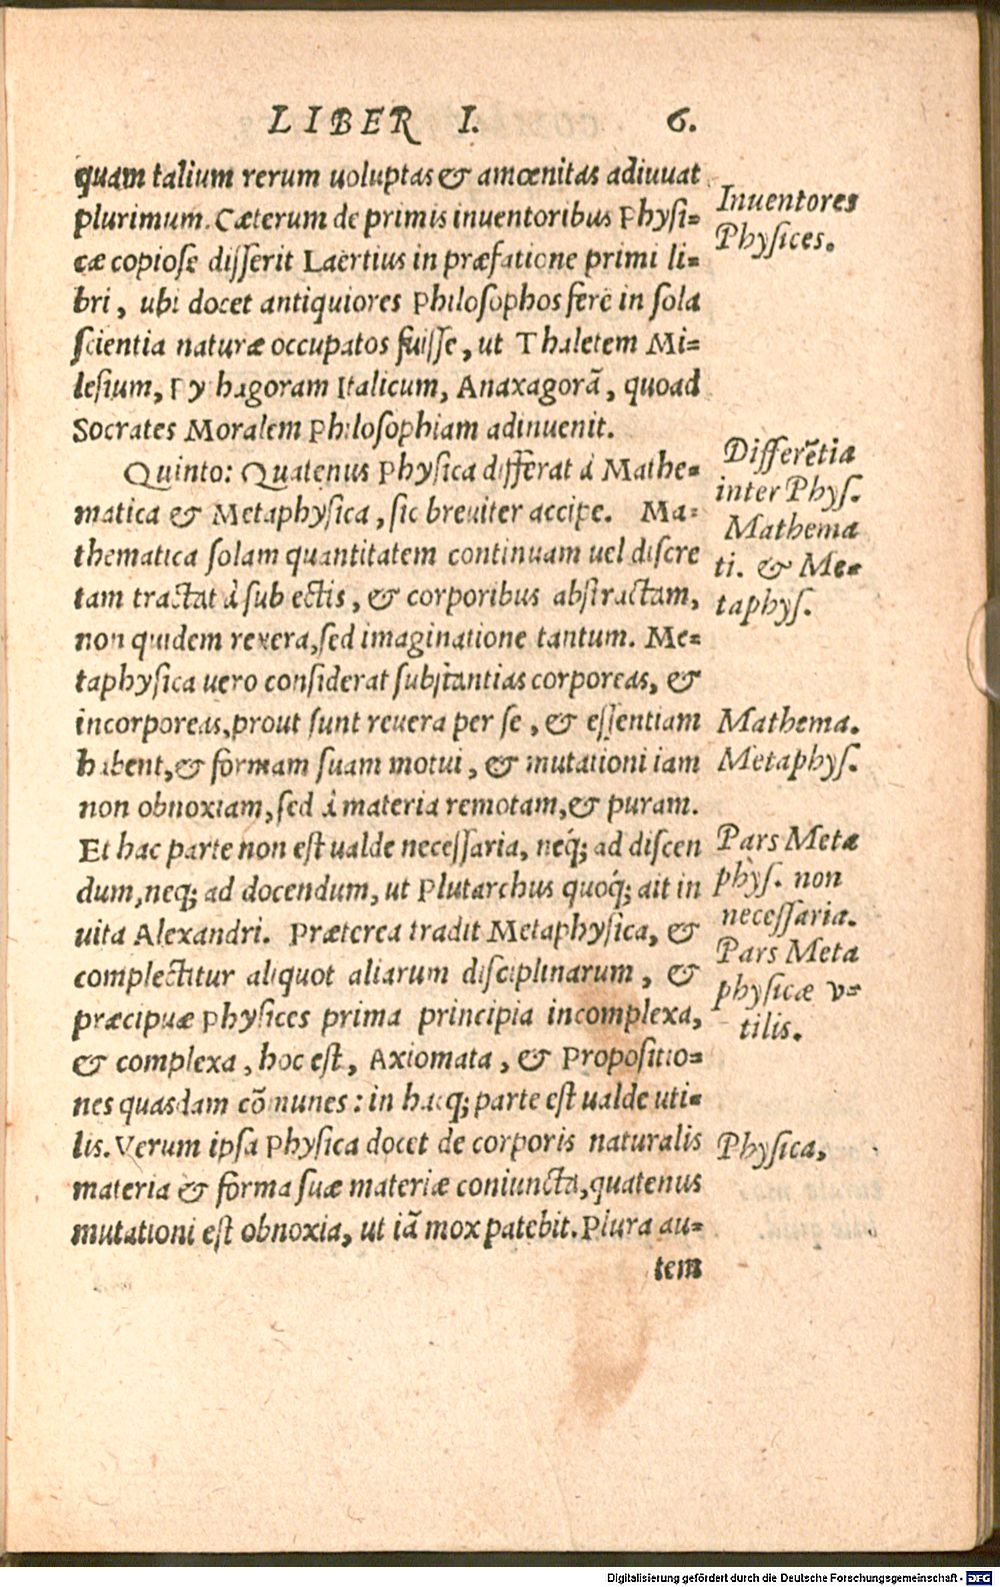 LIBER I. 6.
quam talium rerum uoluptas & amœnitas adiuuat
plurimum. Cæterum de primis inuentoribus Physi=
cæ copiose disserit Laërtius in præfatione primi li=
bri, ubi docet antiquiores Philosophos ferè in sola
scientia naturæ occupatos fuisse, ut Thaletem Mi=
lesium, Py hagoram Italicum, Anaxagorã, quoad
Socrates Moralem Philosophiam adinuenit.
Inuentores
Physices.
Quinto: Quatenus Physica differat à Mathe=
matica & Metaphysica, sic breuiter accipe. Ma=
thematica solam quantitatem continuam uel discre
tam tractat à sub ectis, & corporibus abstractam,
non quidem reuera, sed imaginatione tantum. Me=
taphysica uero considerat substantias corporeas, &
incorporeas, prout sunt reuera per se, & essentiam
habent, & formam suam motui, & mutationi iam
non obnoxiam, sed à materia remotam, & puram.
Et hac parte non est ualde necessaria, neq́; ad discen
dum, neq; ad docendum, ut Plutarchus quoq́; ait in
uita Alexandri. Præterea tradit Metaphysica, &
complectitur aliquot aliarum disciplinarum, &
præcipuæ Physices prima principia incomplexa,
& complexa, hoc est, Axiomata, & Propositio=
nes quasdam cõmunes: in hacq; parte est ualde uti=
lis. Verum ipsa Physica docet de corporis naturalis
materia & forma suæ materiæ coniuncta, quatenus
mutationi est obnoxia, ut iã mox patebit. Plura au=
tem
Differẽtia
inter Phys.
Mathema
ti. & Me=
taphys.
Mathema.
Metaphys.
Pars Metæ
phys. non
necessaria.
Pars Meta
physicæ v=
tilis.
Physica,
Digitalisierung gefördert durch die Deutsche Forschungsgemeinschaft - DFG